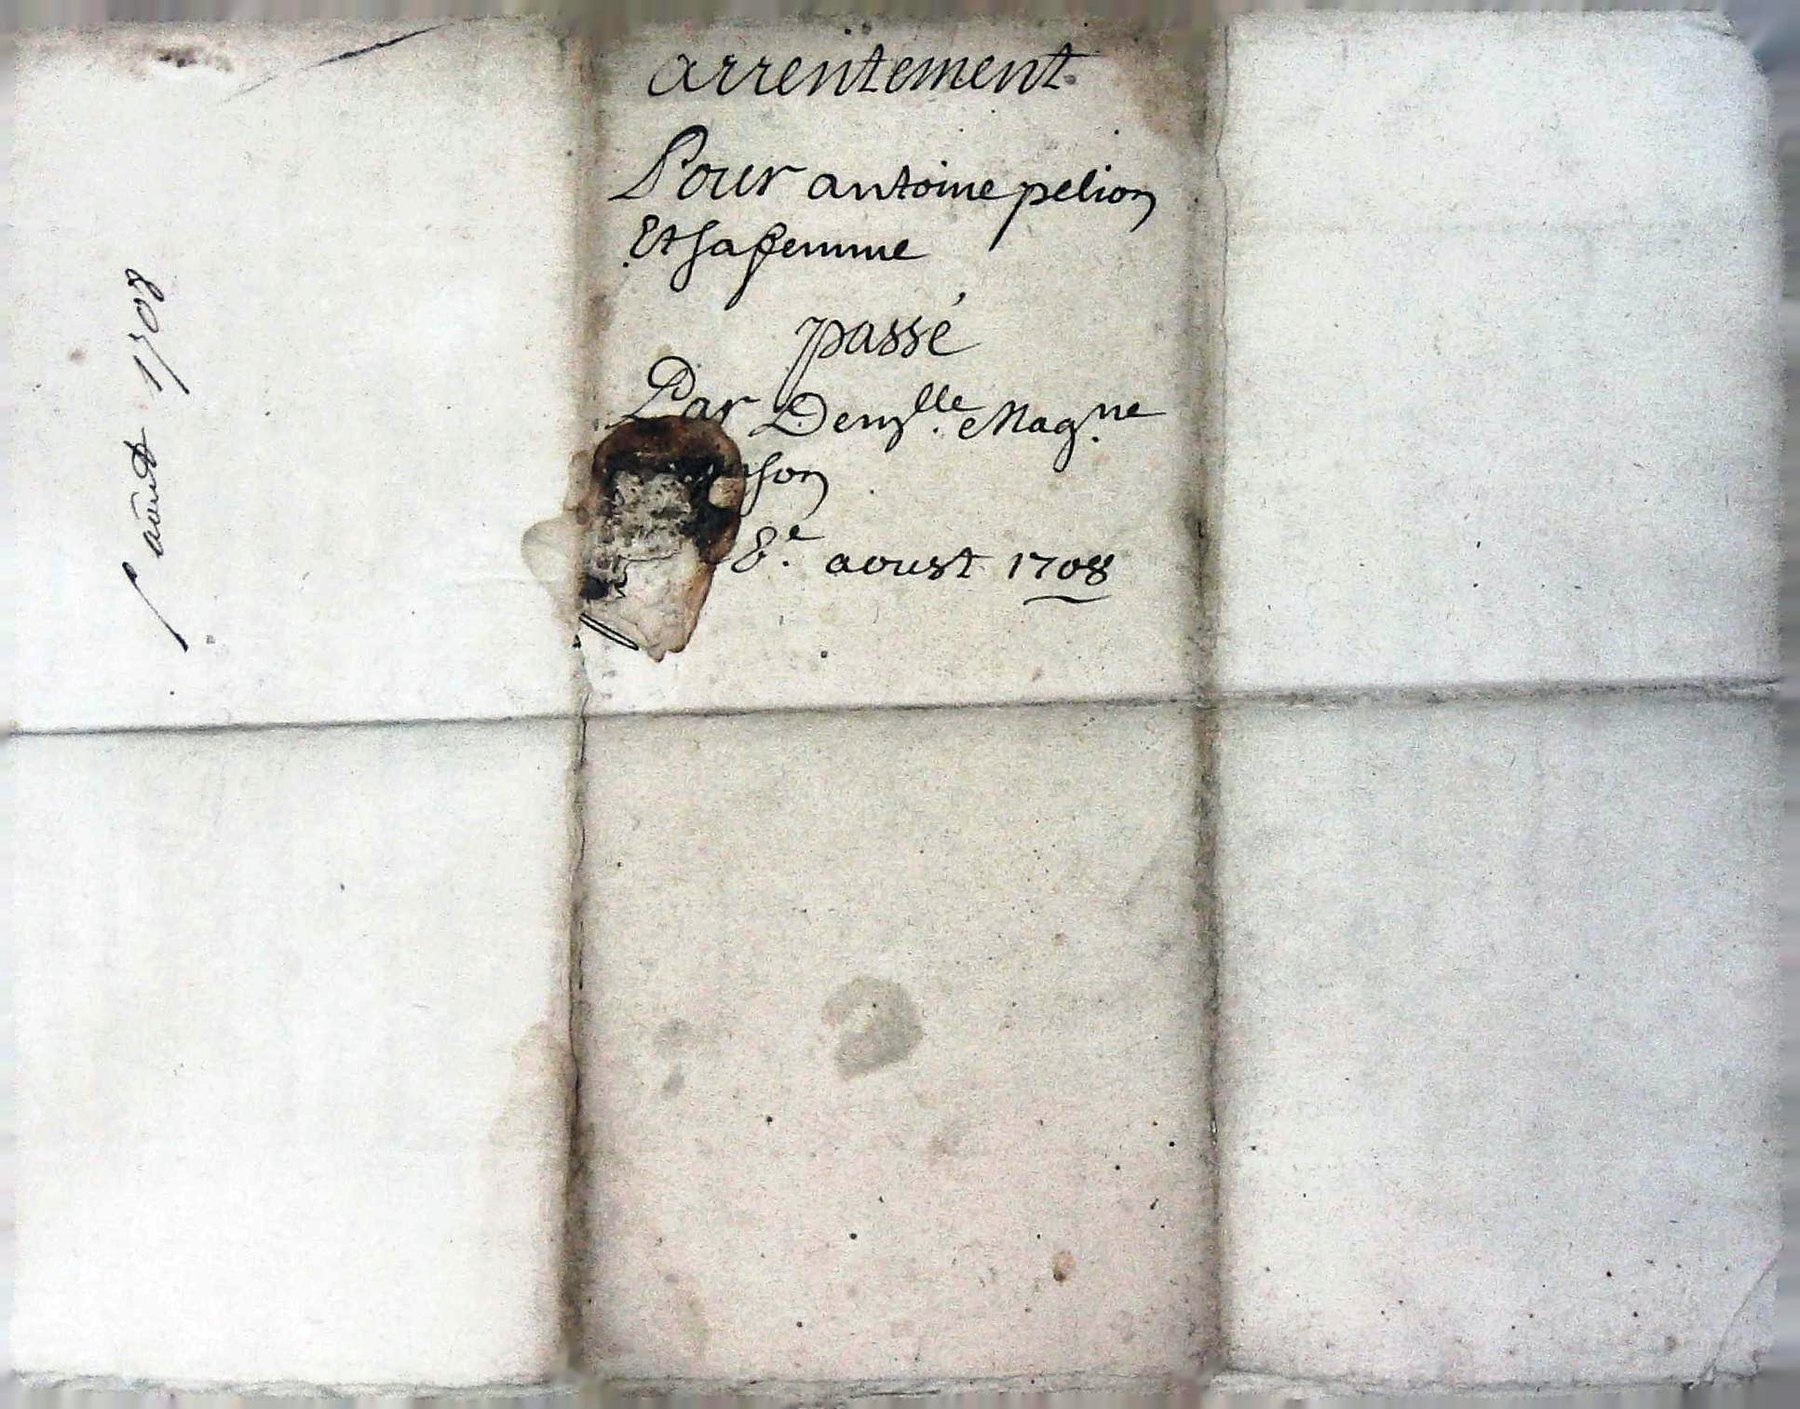 arrentement
Pour antoine pelion
Et sa femme
passé
Par Demlle. Magne
son
8e. aoust 1708
aoust 1708